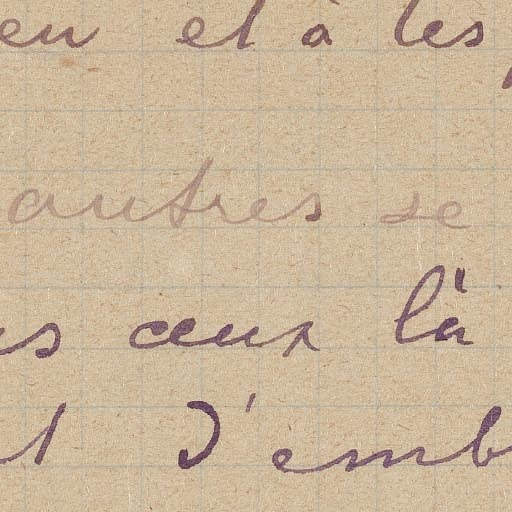 en et à les
autres se
s ceux là
t d'emb